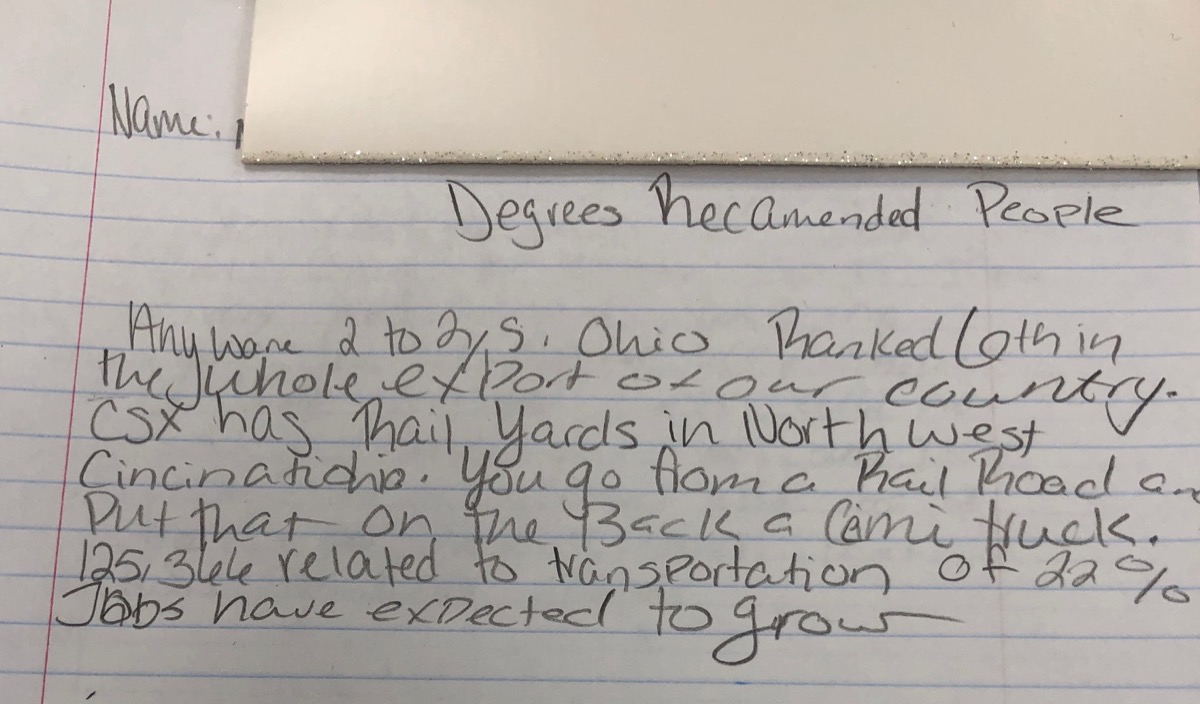 Name:
Degrees Recamended People
Any ware 2 to 2,5. Ohio Ranked 6th in
the whole export of our country.
CSX has Rail Yards in North west
Cincinatiohio. You go from a Rail Road an
Put that on the Back a Cemi truck.
125,366 related to transportation of 22%
Jobs have expected to grow